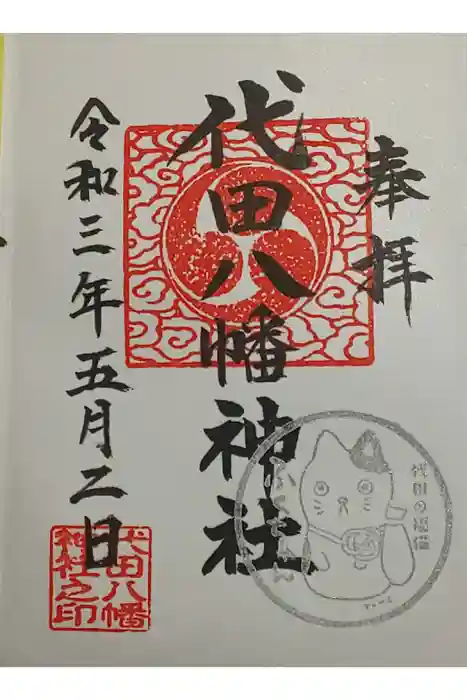 奉拝
代田八幡神社
令和三年五月二日
代田八幡
神社之印
代田の招福猫
ふくちゃん